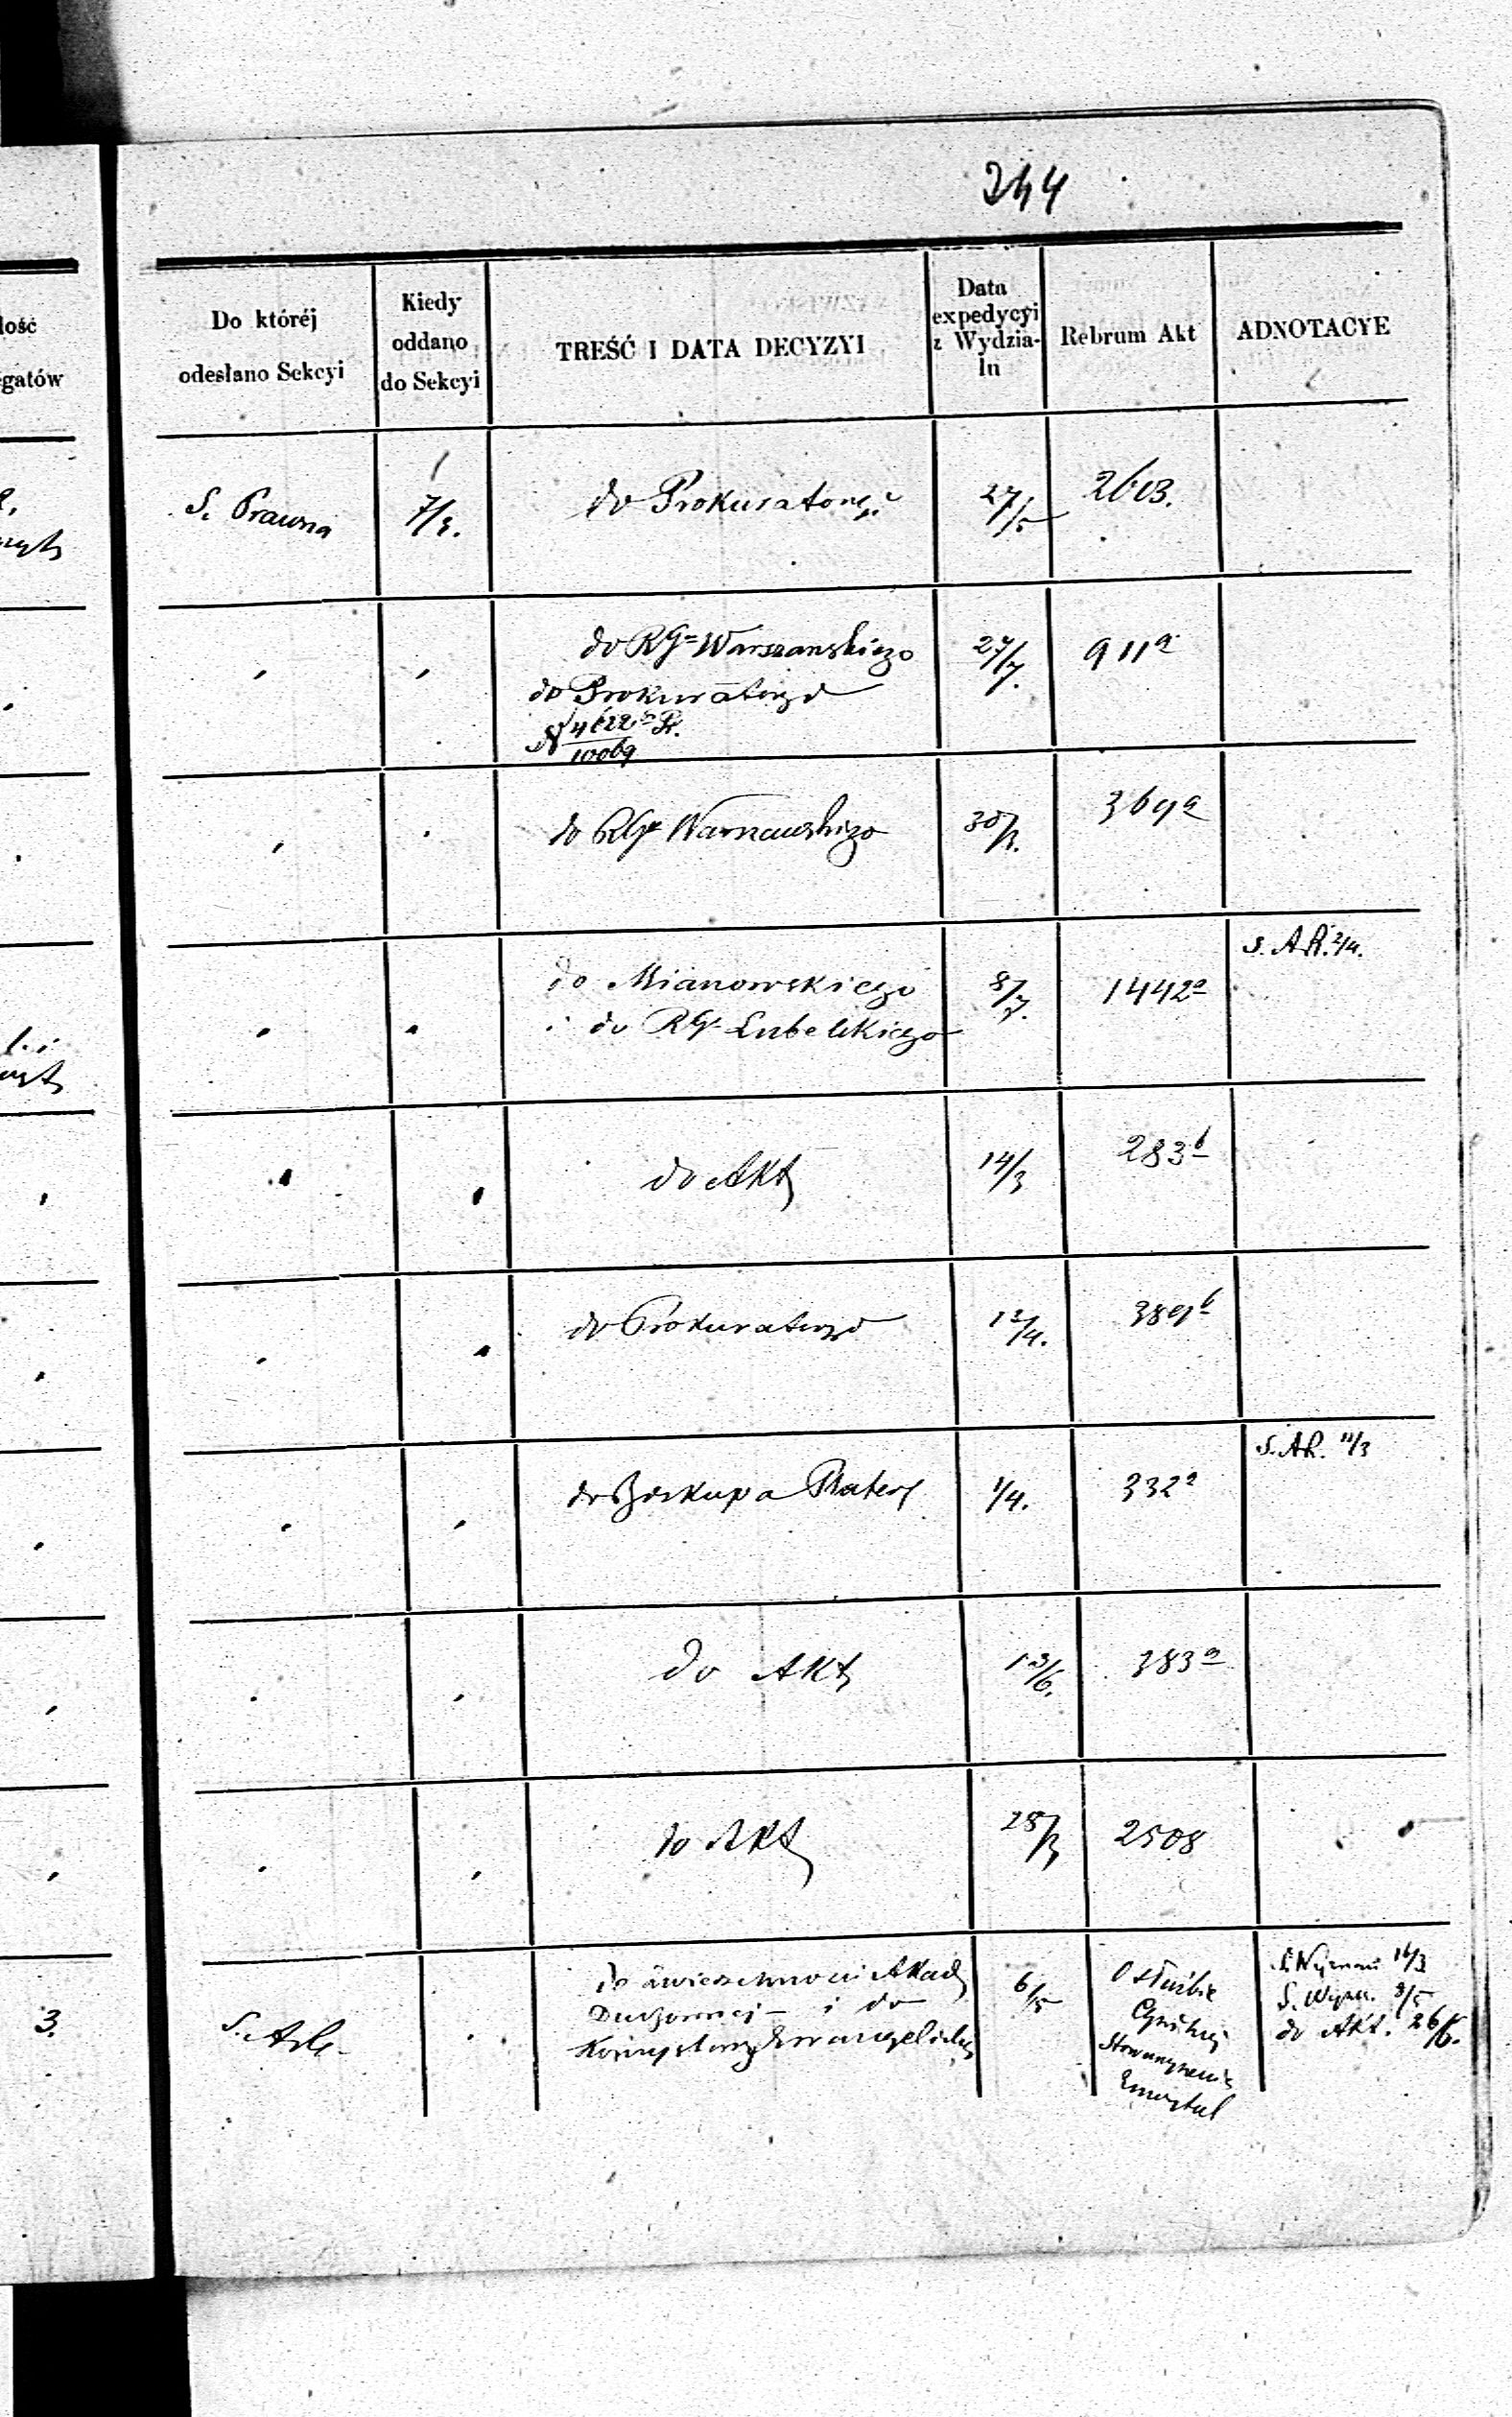 244
Do któréj
odesłano Sekcyi
Kiedy
oddano
do Sekcyi
TREŚĆ I DATA DECYZYI
Data
expedycyi
z Wydzia-
łu
Rebrum Akt
ADNOTACYE
łość
egatów
S. Prawna
7/3.
do Prokuratoryi
27/5
2603.
do RGu Warszawskiego
do Prokuratoryi
10069
27/7.
911a
do RGu Warszawskiego
30/3.
369a
do Mianowskiego
i do RGu Lubelskiego
8/7.
1442a
S. AR. 2/4.
do Akt
14/3
283b
do Prokuratoryi
12/4.
389b
do Biskupa Platera
1/4.
332a
S. AR. 11/3
do Akt
13/6.
383a
do Akt
28/3
2508
3.
do zwierzchności Akad
Duchownej i do
Konsystorzy Ewangelickich
6/5
O służbie
Cywilnej
Stowarzyszenie
Emerytal
16/3
S. Wyzn. 8/5
do Akt. 26/6.